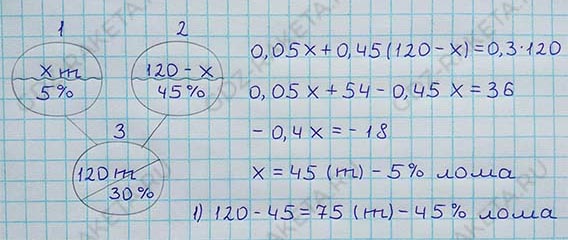 1
2
x т
5%
120 - x
45%
3
120 т
30%
0,05x + 0,45 (120 - x) = 0,3·120
0,05x + 54 - 0,45 x = 36
- 0,4x = - 18
x = 45 (т) - 5% лома
1) 120 - 45 = 75 (т) - 45% лома
GDZ-RAKETA.RU